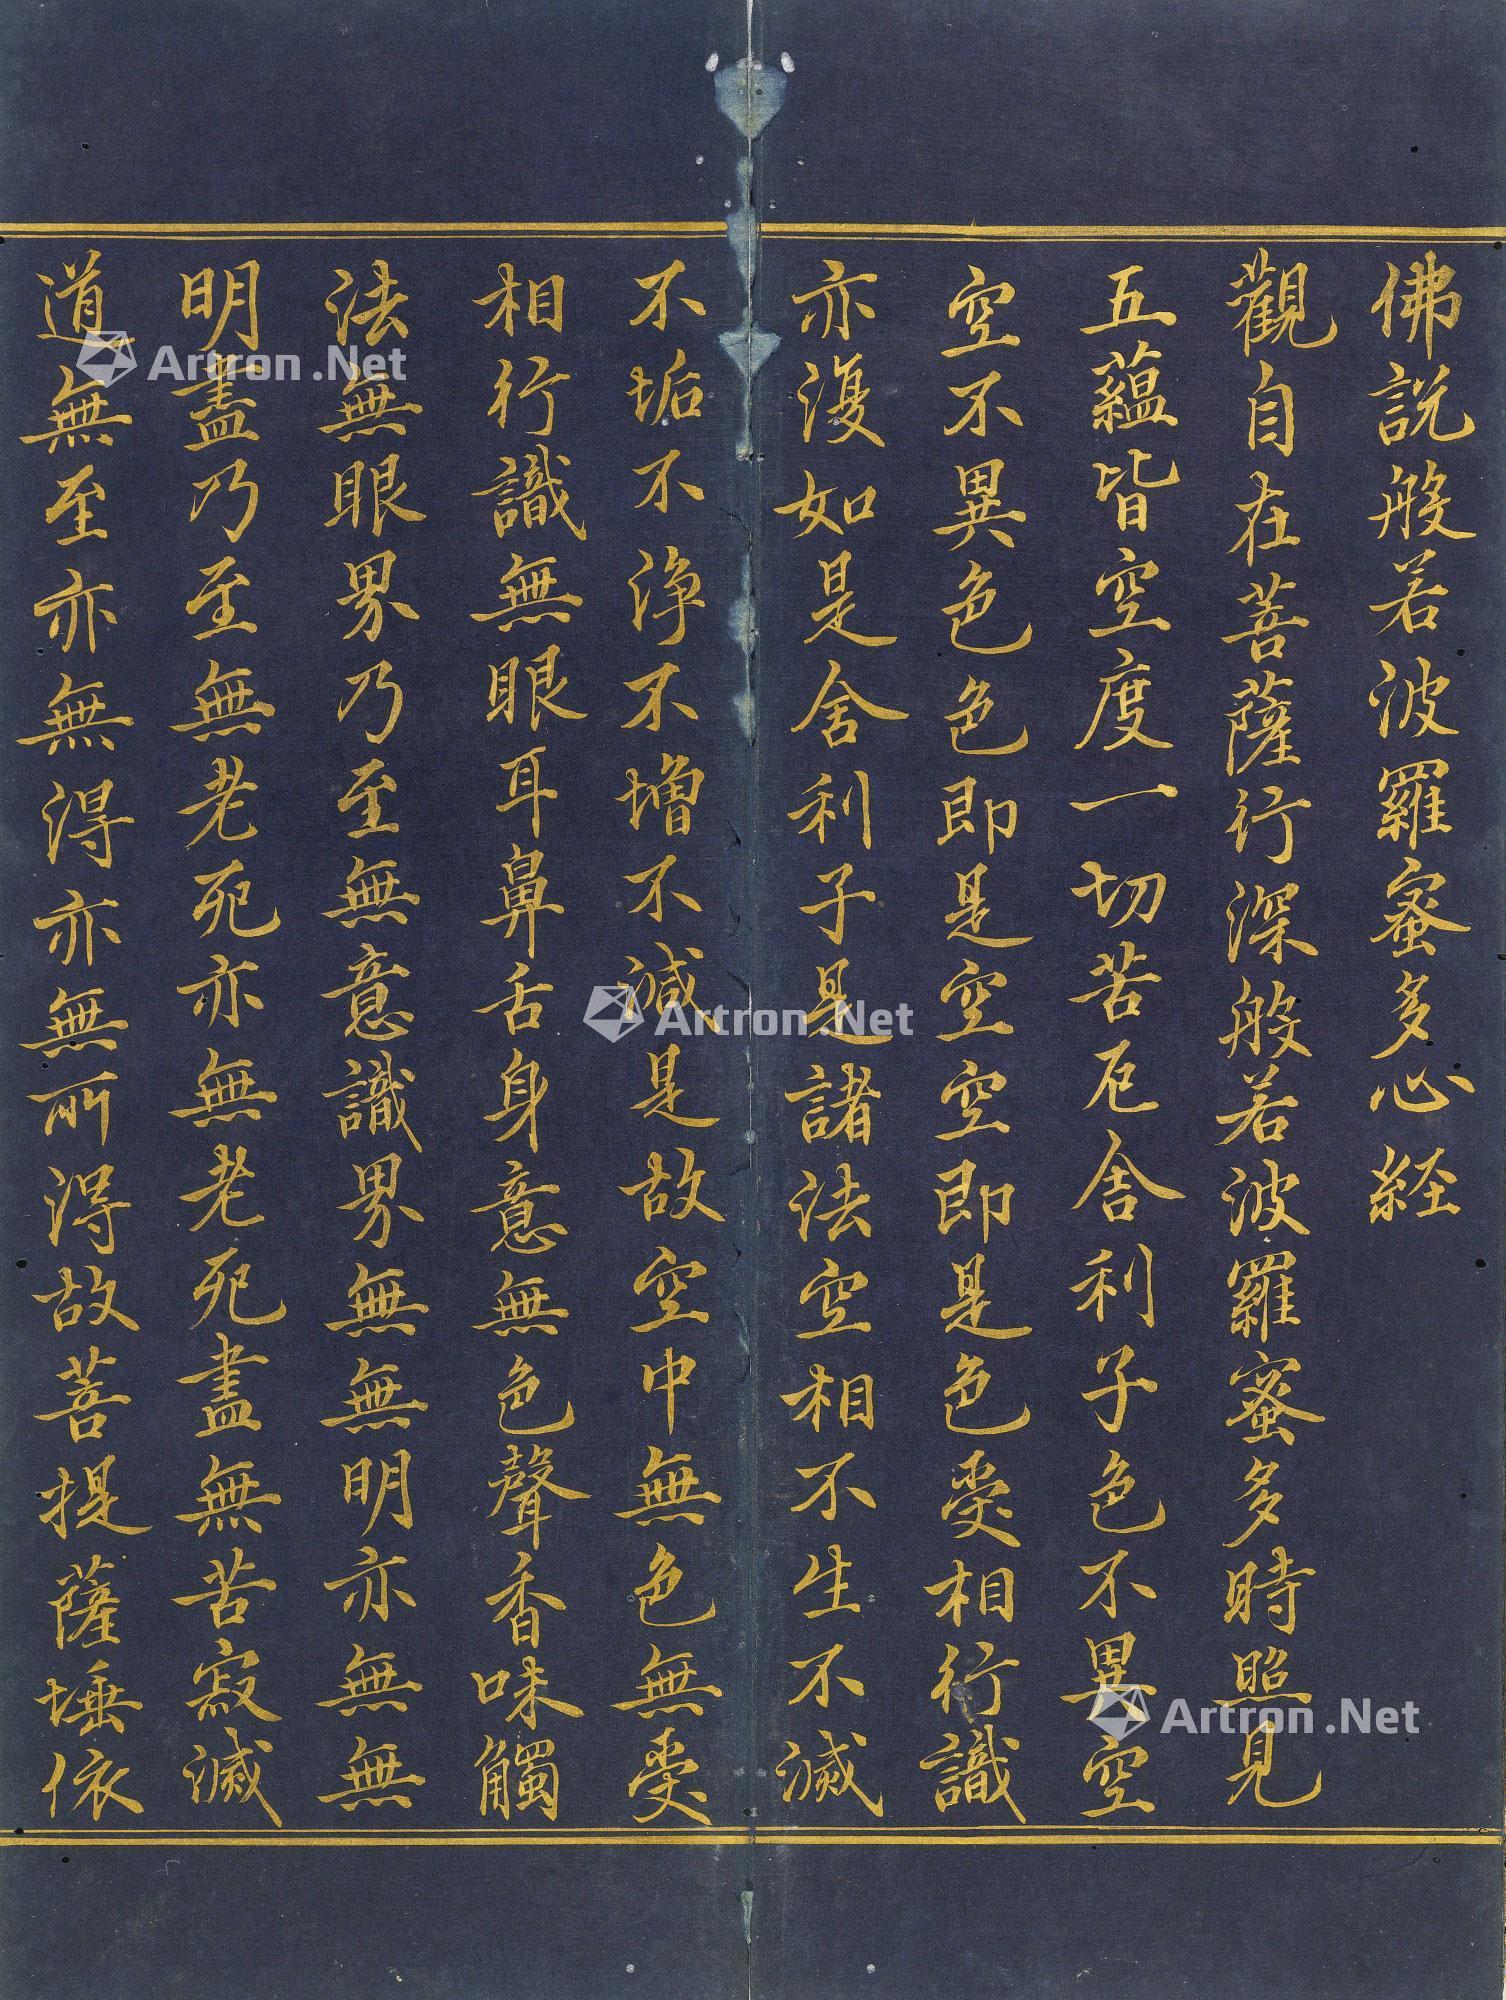 佛説般若波羅蜜多心経
觀自在菩薩行深般若波羅蜜多時照見
五蘊皆空度一切苦厄舍利子色不異空
空不異色色即是空空即是色受相行識
亦復如是舍利子是諸法空相不生不滅
不垢不淨不增不減是故空中無色無受
相行識無眼耳鼻舌身意無色聲香味觸
法無眼界乃至無意識界無無明亦無無
明盡乃至無老死亦無老死盡無苦寂滅
道無至亦無得亦無所得故菩提薩埵依
Artron.Net
Artron.Net
Artron.Net